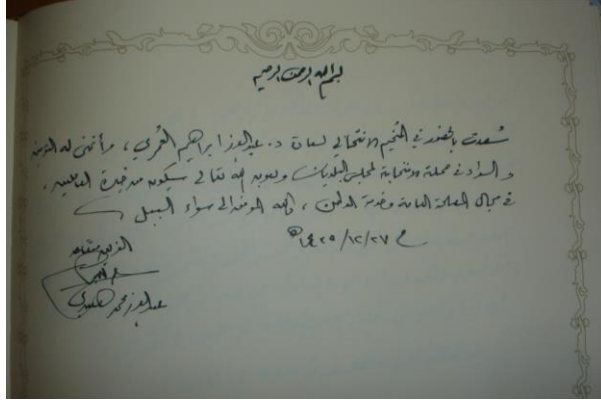 بسم الله الرحمن الرحيم
سعدت بالحضور في المخيم الانتخابي لسعادة د. عبدالعزيز ابراهيم العُمري ، وأتمنى له التوفيق
والسداد في حملته الانتخابية لمجلس البلديات وبعون الله تعالى سيكون من خيرة العاملين ،
في مجال المصلحة العامة وخدمة الوطن ، والله الموفق إلى سواء السبيل
ح ١٤٢٥/١٢/٢٧هـ
الفريق متقاعد
عبدالعزيز محمد